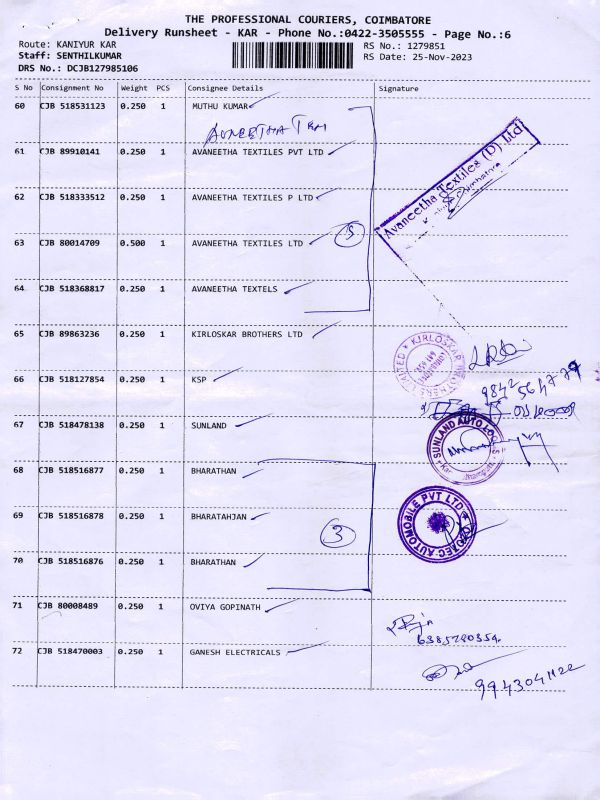 THE PROFESSIONAL COURIERS, COIMBATORE
Delivery Runsheet - KAR - Phone No.:0422-3505555 - Page No.:6
Route: KANIYUR KAR
RS No.: 1279851
Staff: SENTHILKUMAR
RS Date: 25-Nov-2023
DRS No.: DCJB127985106
S No Consignment No Weight PCS Consignee Details Signature
60 CJB 518531123 0.250 1 MUTHU KUMAR
AVNEETHA TEM
61 CJB 89910141 0.250 1 AVANEETHA TEXTILES PVT LTD
Avaneetha Textiles (P) Ltd
62 CJB 518333512 0.250 1 AVANEETHA TEXTILES P LTD
63 CJB 80014709 0.500 1 AVANEETHA TEXTILES LTD
5
64 CJB 518368817 0.250 1 AVANEETHA TEXTELS
65 CJB 89863236 0.250 1 KIRLOSKAR BROTHERS LTD
KIRLOSKAR BROTHERS LIMITED
66 CJB 518127854 0.250 1 KSP
67 CJB 518478138 0.250 1 SUNLAND
SUNLAND AUTO
68 CJB 518516877 0.250 1 BHARATHAN
69 CJB 518516878 0.250 1 BHARATAHJAN
3
AUTOMOBILE PVT LTD
70 CJB 518516876 0.250 1 BHARATHAN
71 CJB 80008489 0.250 1 OVIYA GOPINATH
6385290354
72 CJB 518470003 0.250 1 GANESH ELECTRICALS